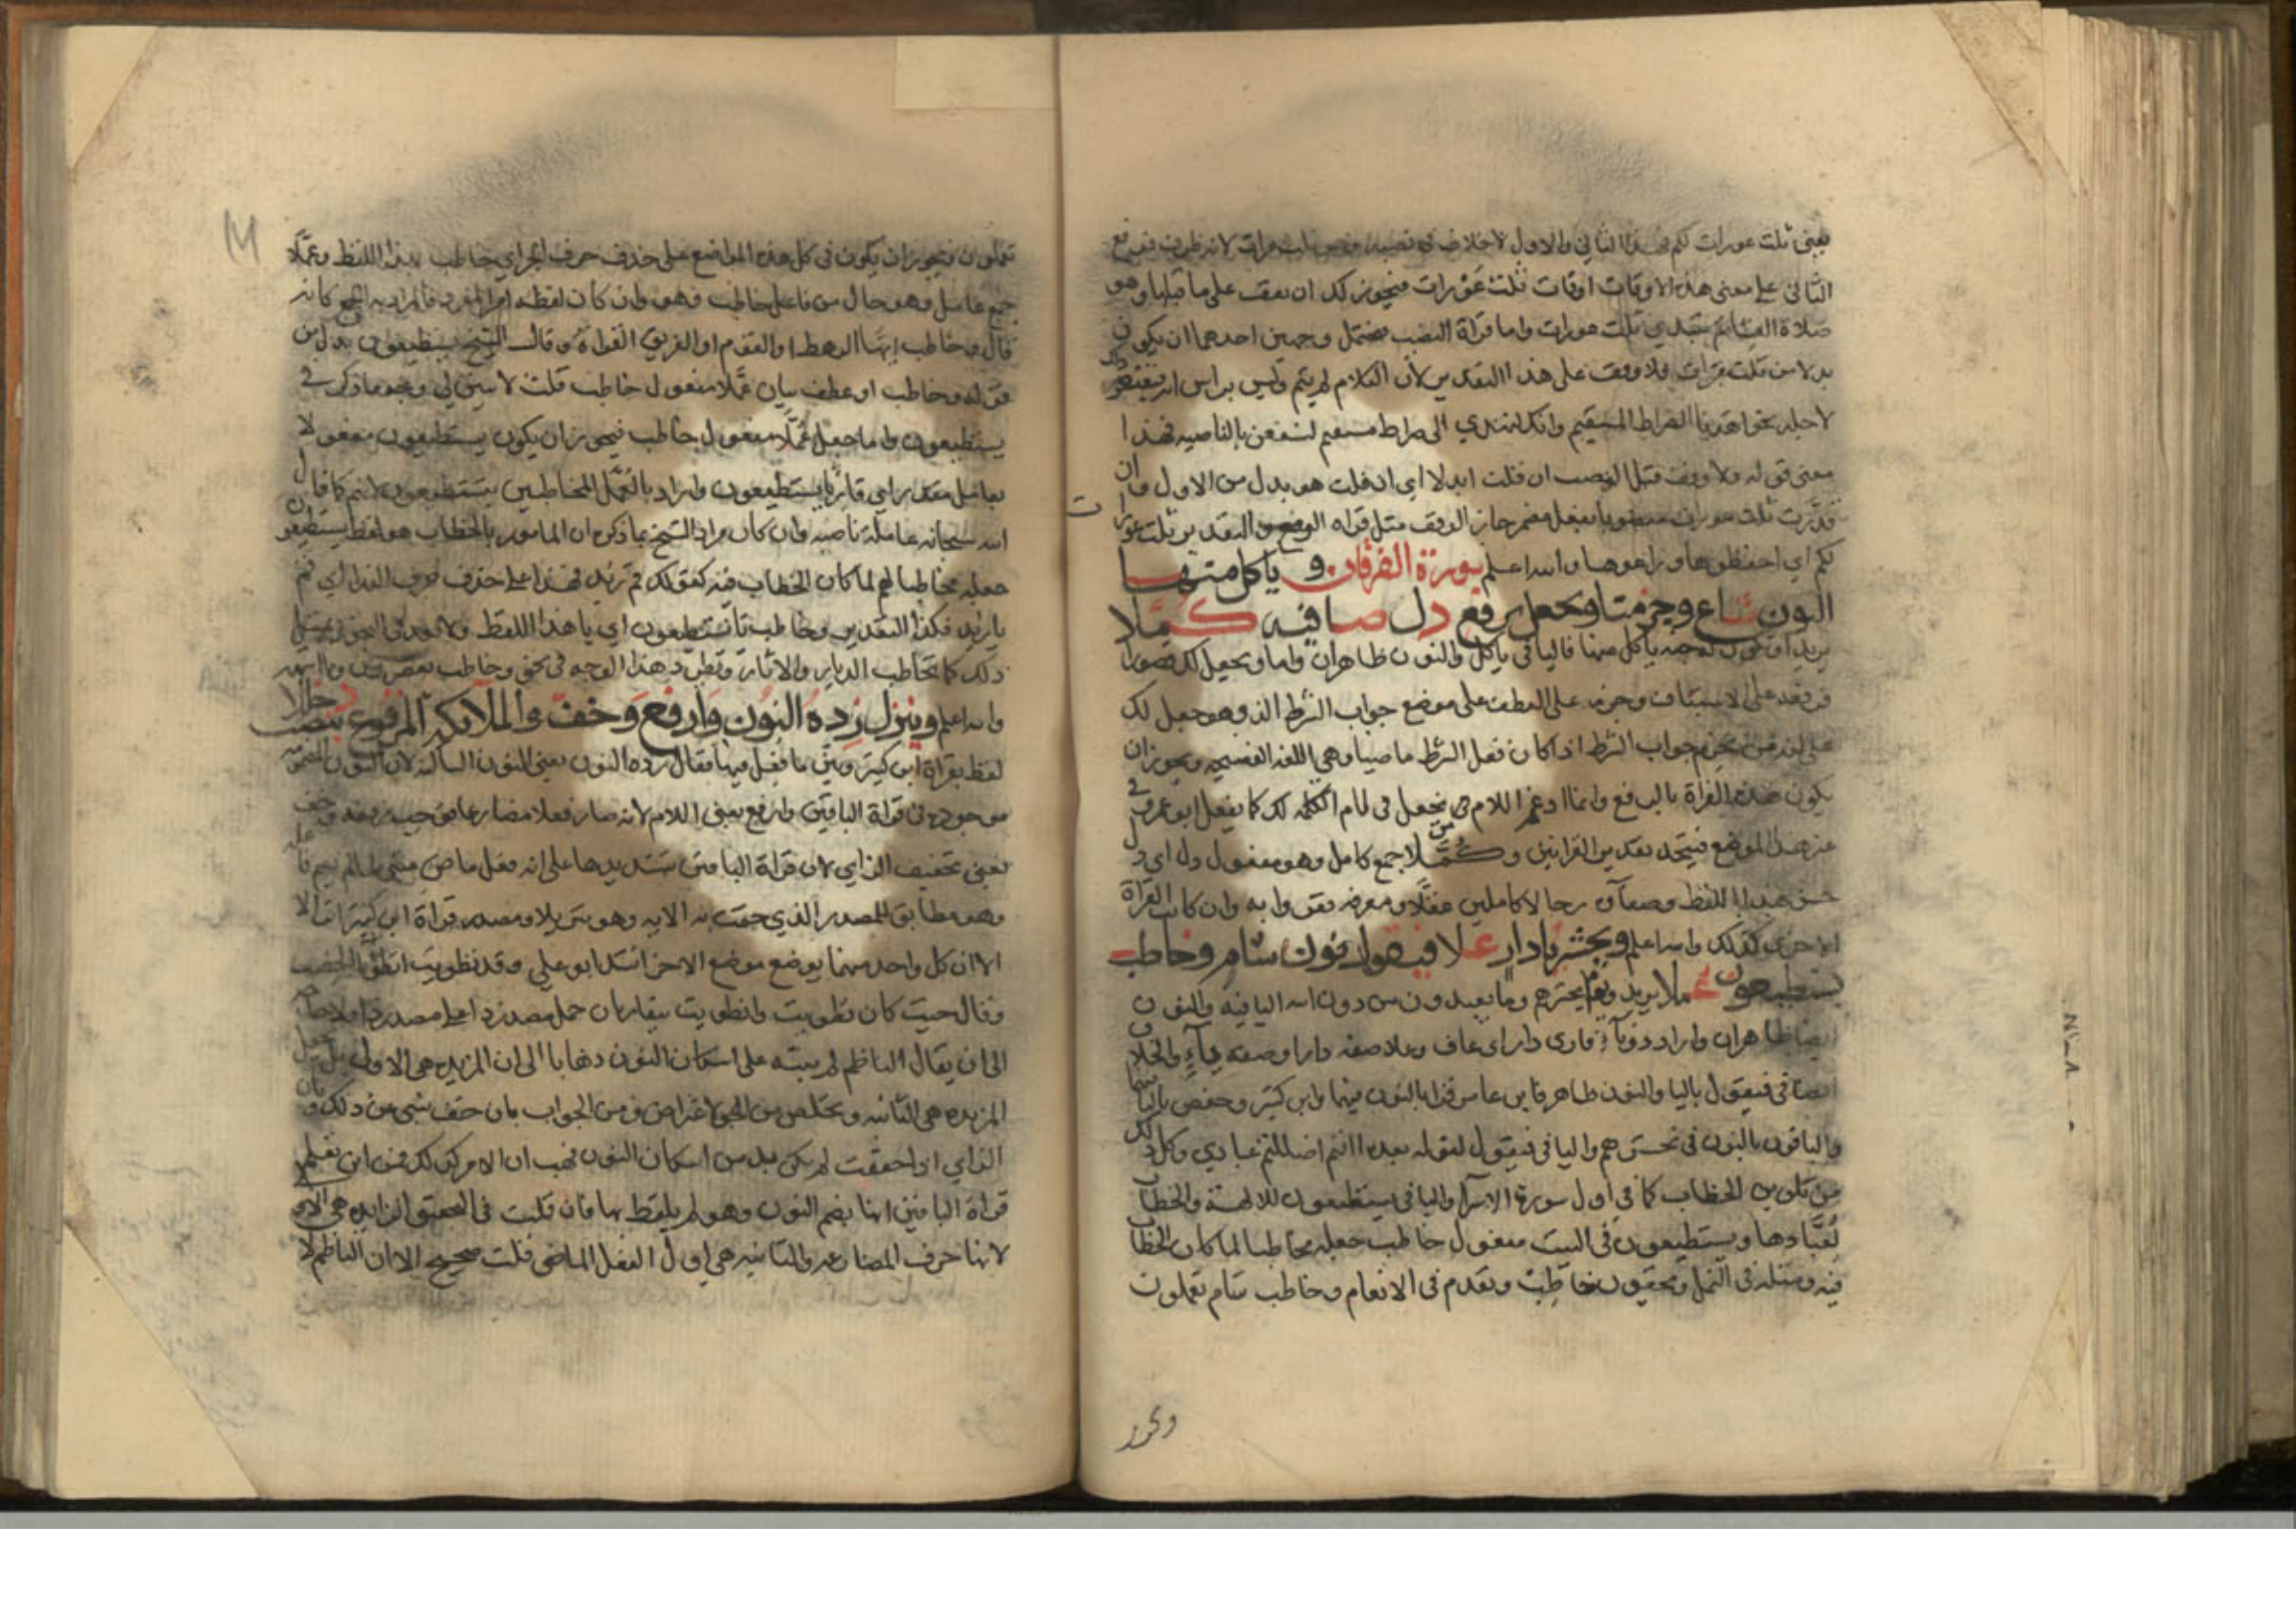 يعني ثلث عورات لكم فهذا الثاني والاول لاخلاف في نصبه وهو ثلث مرات لانه ظرف فرفع
الثاني على معنى هذه الاوقات اوقات ثلث عورات فيجوز لك ان تقف على ما قبلها وهو
صلاة العشا ثم تبتدي ثلث عورات واما قراة النصب فتحتمل وجهين احدهما ان يكون
بدلا من ثلث مرات فلا وقف على هذا التقدير لان الكلام لم يتم وليس براس اية فيغتفر ذلك
لاجله نحو اهدنا الصراط المستقيم وانك لتهدي الى صراط مستقيم لنسفعن بالناصيه فهذا
معنى قوله ولا وقف قبل النصب ان قلت ابدلا اي ان قلت هو بدل من الاول وان
قدرت ثلث عورات منصوبا بفعل مضمر جاز الوقف مثل قراه الرفع والتقدير ثلث عورات
لكم اي احفظوها وراعوها والله اعلم سورة الفرقان و ياكل منها
النون شاع وجزمنا ويجعل برفع دل صافيه كملا
يريد او تكون له جنه ياكل منها فاليا في ياكل والنون ظاهران واما ويجعل لك قصورا
فرفعه على الاستيناف وجزمه على العطف على موضع جواب الشرط الذي هو جعل لك
على لغه من يجزم جواب الشرط اذا كان فعل الشرط ماضيا وهي اللغه الفصيحه ويجوز ان
يكون هذه القراة بالرفع وانما ادغم اللام من يجعل في لام لك كما يفعل ابو عمرو في
غير هذا الموضع فيتحد تقدير القراتين وكملا جمع كامل وهو مفعول دل اي دل
حسن هذا اللفظ وصفاؤه رجالا كاملين عقلا ومعرفه فقروا به وان كانت القراة
الاخرى كذلك والله اعلم ونحشر يا دار علا فيقول نون شام وخاطب
يستطيعون عملا يريد ويوم يحشرهم وما يعبدون من دون الله اليا فيه والنون
ايضا ظاهران واراد دونا قاري دار اي عاف وعلا صفه دارا وصفه والخلاف
ايضا في فيقول باليا والنون ظاهر فابن عامر قرا بالنون فيهما وابن كثير وحفص باليا فيهما
والباقون بالنون في نحشرهم واليا في فيقول لقوله بعده اانتم اضللتم عبادي وكل ذلك
من تلوين الخطاب كما في اول سورة الاسرا واليا في يستطيعون للالهة والخطاب
لعبادها ويستطيعون في البيت مفعول خاطب جعله مخاطبا لما كان الخطاب
فيه ومثله في النمل وتخفون خاطب وتقدم في الانعام وخاطب شام تعملون
ويجوز
تعملون ويجوز ان يكون في كل هذه المواضع على حذف حرف الجر اي خاطب بهذا اللفظ وعملا
جمع عامل وهو حال من فاعل خاطب فهو وان كان لفظه امرا لمفرد فالمراد به الجمع كانه
قال وخاطب ايها الرهط او القوم او الفريق القراة وقال الشيخ يستطيعون بدل من
قوله وخاطب او عطف بيان عملا مفعول خاطب قلت لا يبين لي وجه ما ذكره في
يستطيعون واما جعل عملا مفعول خاطب فيجوز ان يكون يستطيعون مفعولا
بعامل مقدر اي قاريا يستطيعون واراد بالعمل المخاطبين بتستطيعون لانهم كما قال
الله سبحانه عاملة ناصبه وان كان مراد الشيخ بما ذكره ان المامور بالخطاب هو لفظ يستطيعون
جعله مخاطبا لهم لما كان الخطاب فيه كقولك قم زيد فهذا على حذف حرف الندا اي قم
يا زيد فكذا التقدير وخاطب يا تستطيعون اي يا هذا اللفظ ولا بعد في التجوز بمثل
ذلك كما تخاطب الديار والاثار ويطرد هذا الوجه في نحو وخاطب تعصرون وما اشبهه
والله اعلم وينزل زده النون وارفع وخف والملائكه المرفوع ينصب دخللا
لفظ بقراة ابن كثير وبين ما فعل فيها فقال زده النون يعني النون الساكنه لان النون المضمومه
موجوده في قراة الباقين وارفع يعني اللام لانه صار فعلا مضارعا فوجب رفعه وخف
يعني تخفيف الزاي لان قراة الباقين بتشديدها على انه فعل ماض مبني لما لم يسم فاعله
وهو مطابق للمصدر الذي ختمت به الايه وهو تنزيلا ومصدر قراة ابن كثير انزالا
الا ان كل واحد منهما يوضع موضع الاخر انشد ابو علي وقد تطويت انطوا الحضب
وقال حيث كان تطويت وانطويت يتقاربان حمل مصدر ذا على مصدر ذا ولا حاجه
الى ان يقال الناظم لم ينبه على اسكان النون ذهابا الى ان المزيده هي الاولى بل نجعل
المزيده هي الثانيه ونخلص من الاعتراض ومن الجواب بان خف شي من ذلك وبان
الزاي اذا خففت لم يكن بد من اسكان النون فهب ان الامر كذلك فمن اين تعلم
قراة الباقين انها بضم النون وهو لم يلفظ بها فان قلت في التحقيق الزايده هي الاولى
لانها حرف المضارعه والثانيه هي اول الفعل الماضي قلت صحيح الا ان الناظم لا